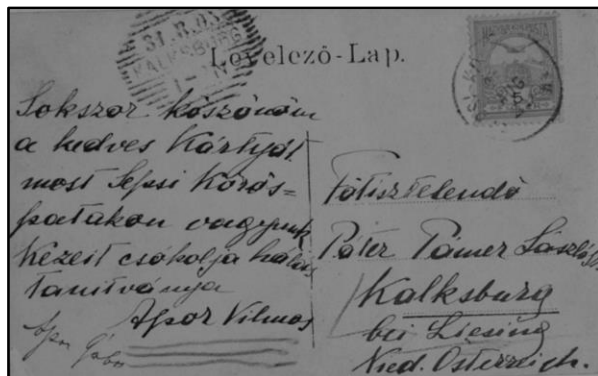 31.8.03
KALKSBURG
Levelező-Lap.
Sokszor köszönöm
a kedves Kártyát
most Sepsi Kőrös-
patakon vagyunk
Kezeit csókolja hálás
tanitványa
Apor Vilmos
Apor Gábor
Főtisztelendő
Páter Tamer László
Kalksburg
bei Liesing
Nied. Österreich.